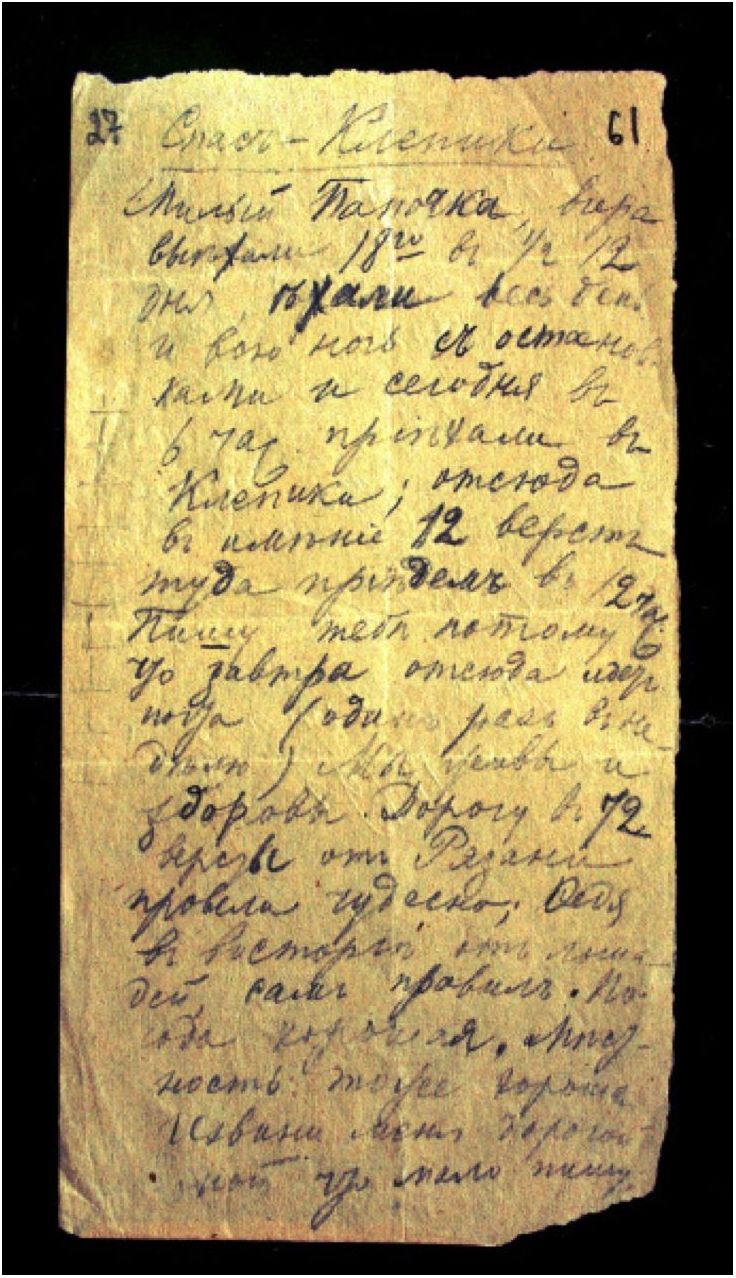 27 Спасъ-Клепики 61
Милый Папочка, вчера
выѣхали 18го въ 1/2 12
дня, ѣхали весь день
и всю ночь съ останов-
ками и сегодня въ
6 час. пріѣхали въ
Клепики; отсюда
въ имѣніе 12 верстъ
туда пріѣдемъ въ 12 час.
Пишу тебѣ потому
что завтра отсюда идет
почта (одинъ разъ в не-
дѣлю) Мы живы и
здоровы. Дорогу въ 72
версты отъ Рязани
провели чудесно; Федя
въ восторгѣ отъ лоша-
дей, самъ правилъ. По-
года хорошая. Мѣст-
ность тоже хороша
Извини меня дорогой
мой что мало пишу